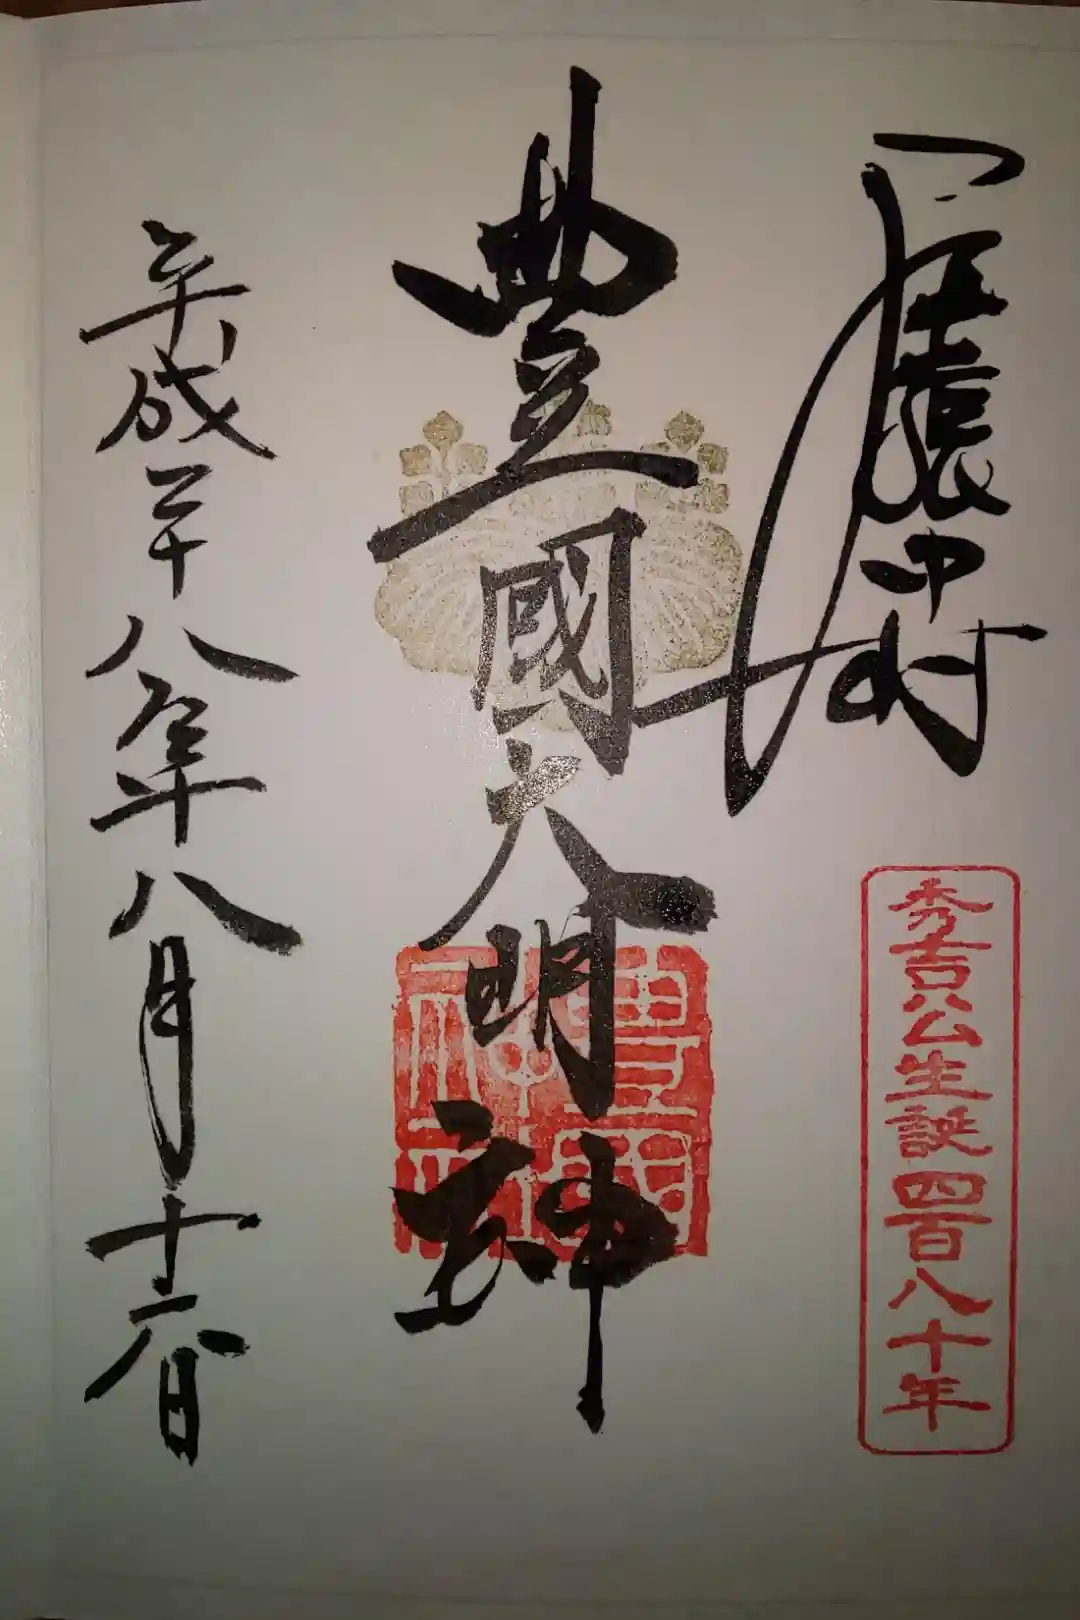 尾張中村
秀吉公生誕四百八十年
豐國大明神
平成二十八年八月十六日